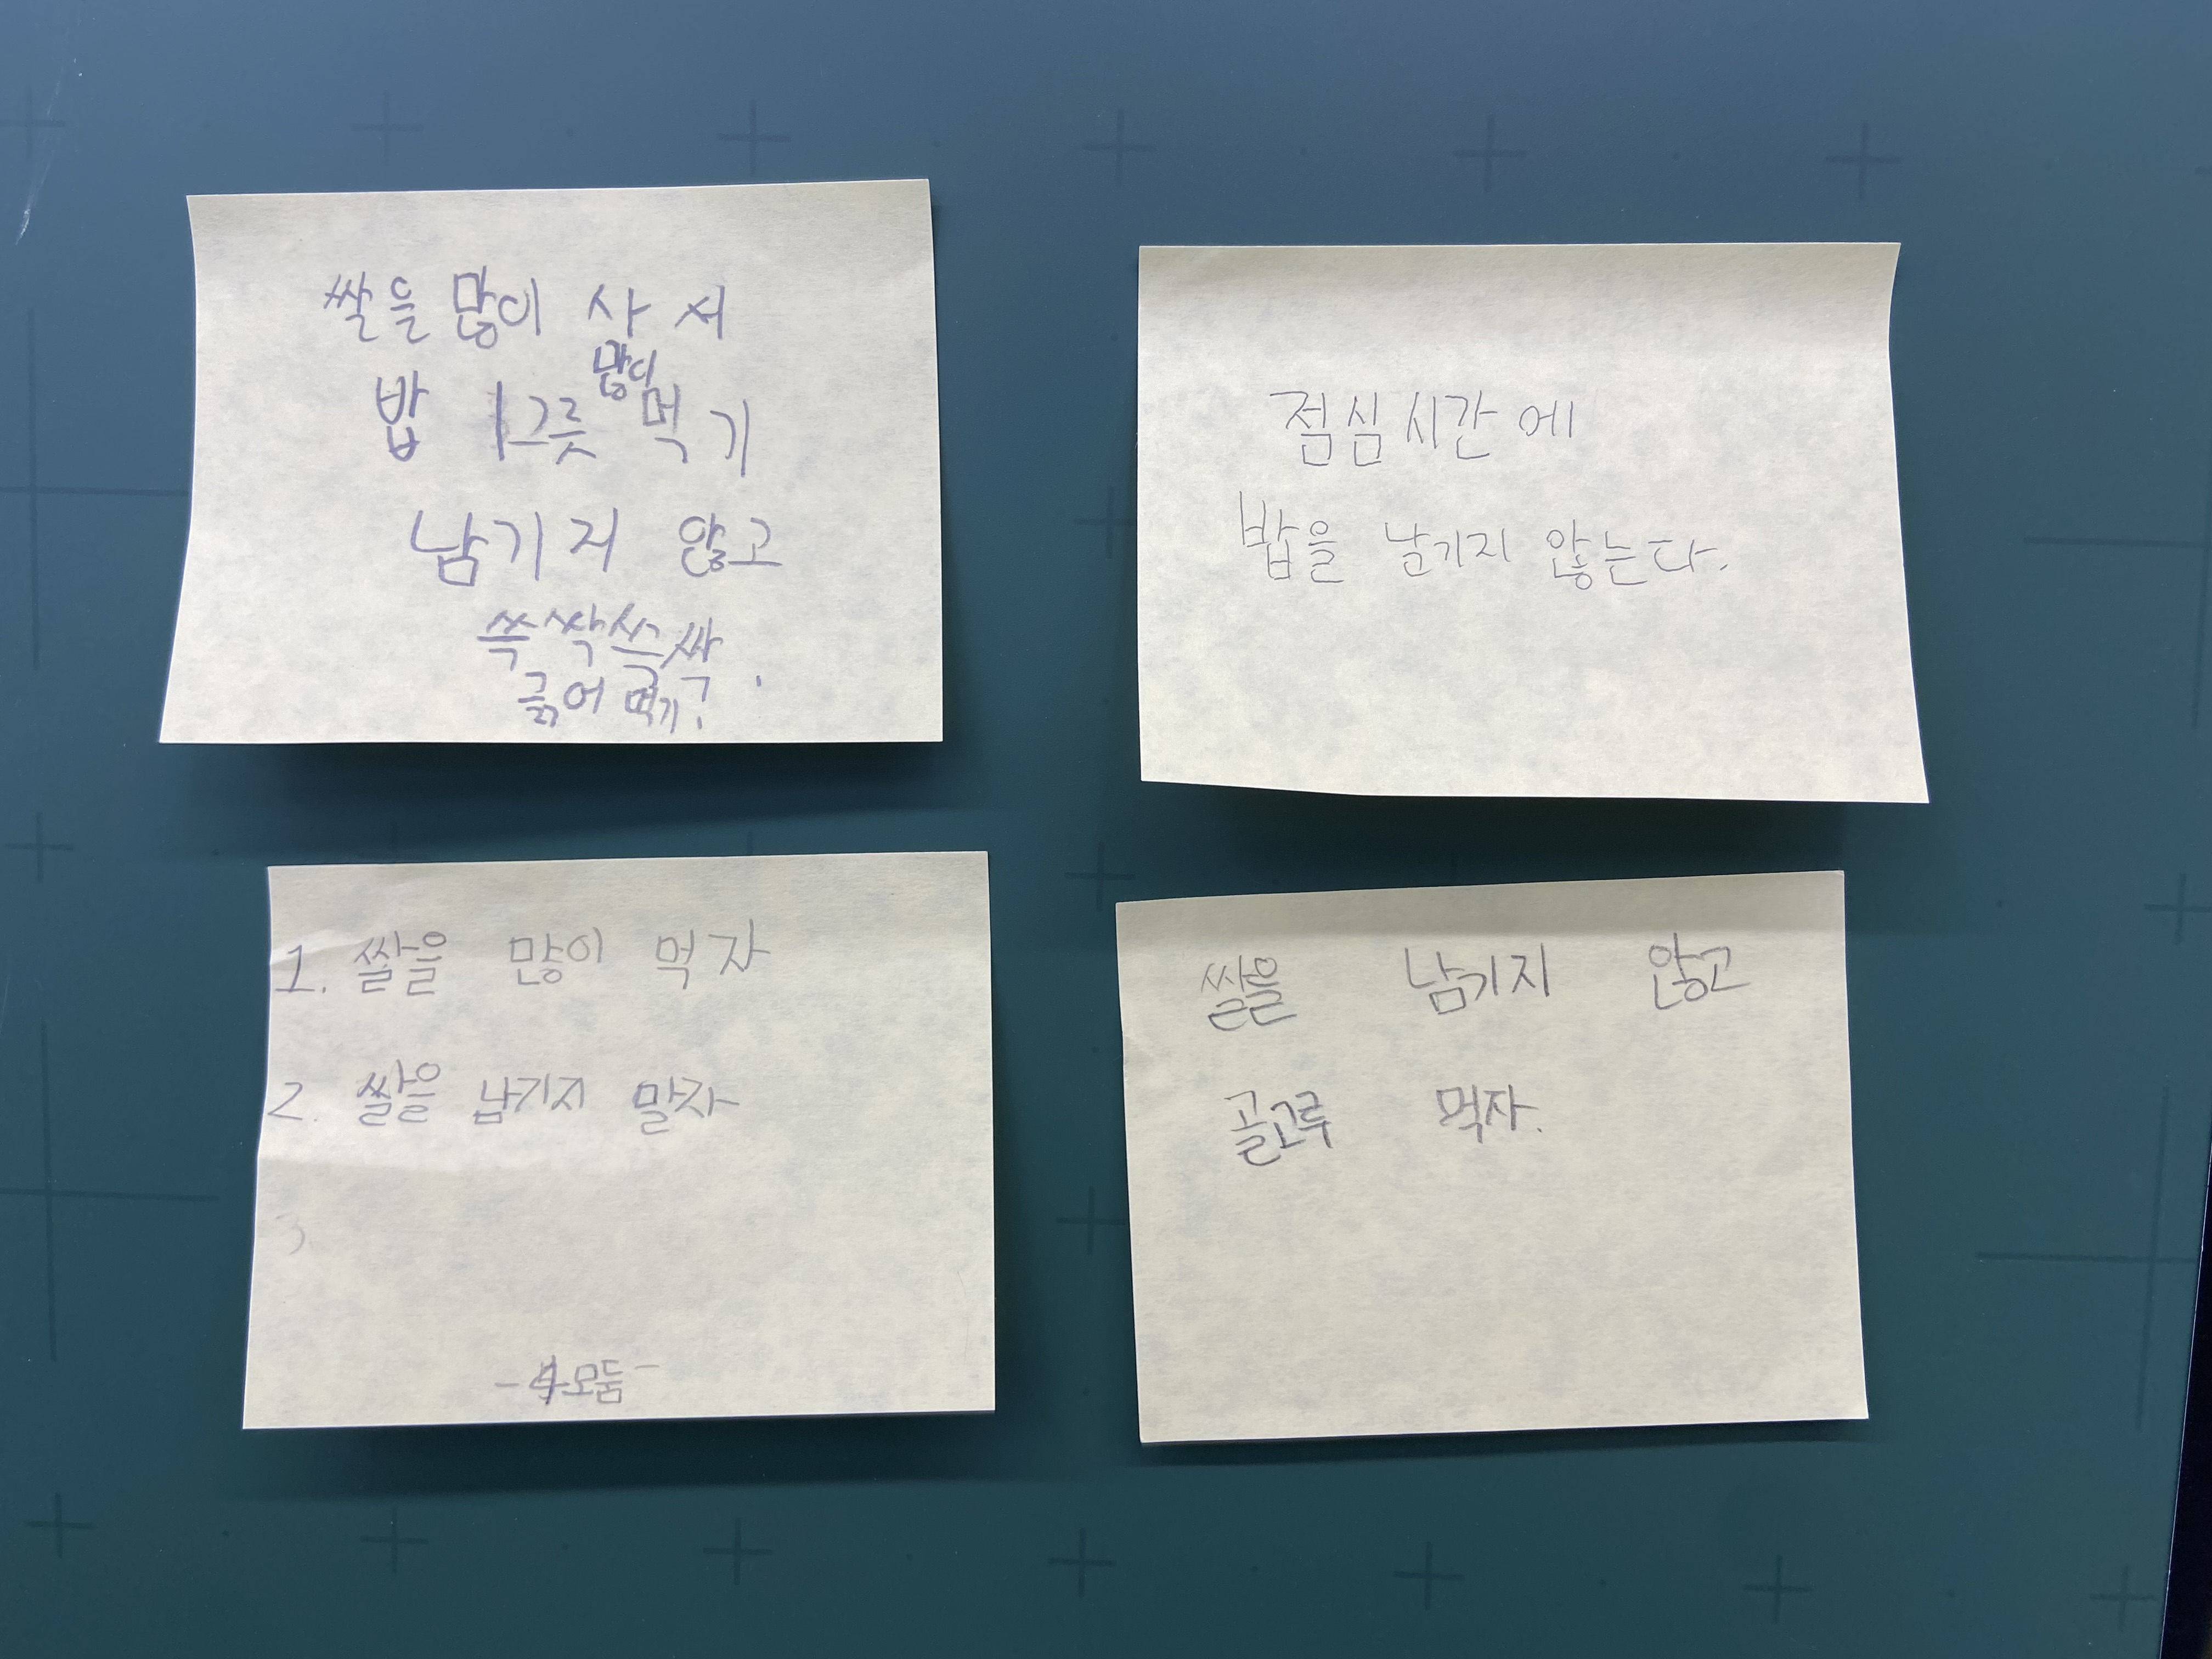 쌀을 많이 사서
많이
밥 1그릇 먹기
남기지 않고
쓱싹쓱싹
긁어 먹기!
점심시간에
밥을 남기지 않는다.
1. 쌀을 많이 먹자
2. 쌀을 남기지 말자
-4모둠-
쌀을 남기지 않고
골고루 먹자.